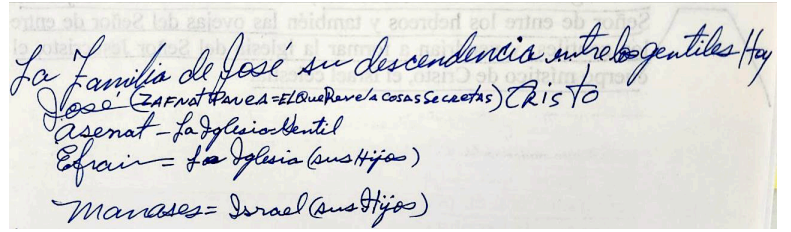 La Familia de José su descendencia entre los gentiles Hoy
José (ZAFNAT PANEA = EL Que Revela COSAS SecretAS) CRISTO
Asenat - La Iglesia Gentil
Efrain = La Iglesia (sus Hijos)
Manases = Israel (sus Hijos)